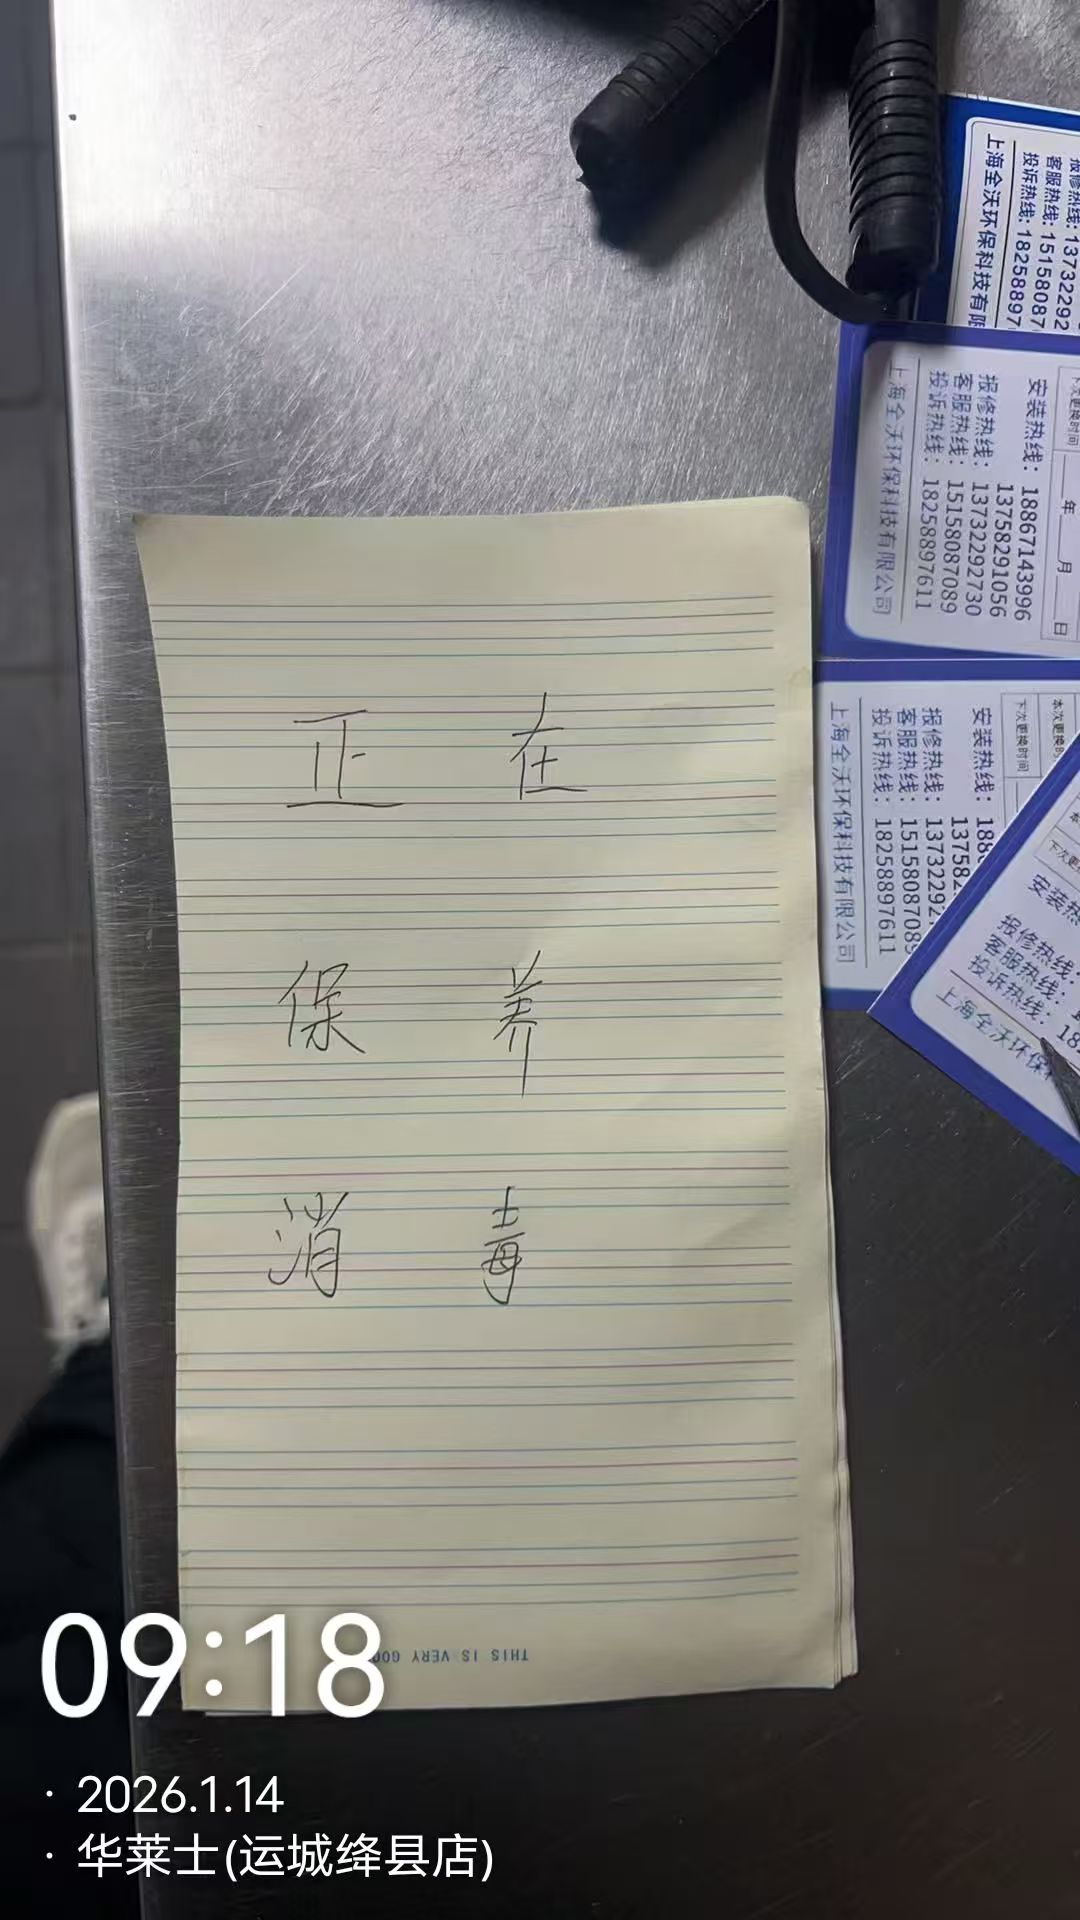 报修热线: 13732292
客服热线: 15158087
投诉热线: 18258897
上海全沃环保科技有限
下次更换时间 年 月 日
安装热线: 18867143996
13758291056
报修热线: 13732292730
客服热线: 15158087089
投诉热线: 18258897611
上海全沃环保科技有限公司
正在
保养
消毒
本次更换时
下次更换时间
安装热线: 188
137582
报修热线: 13732292
客服热线: 15158087089
投诉热线: 18258897611
上海全沃环保科技有限公司
下次更
安装热
报修热线:
客服热线:
投诉热线: 18
上海全沃环保
THIS IS VERY GOO
09:18
· 2026.1.14
· 华莱士(运城绛县店)